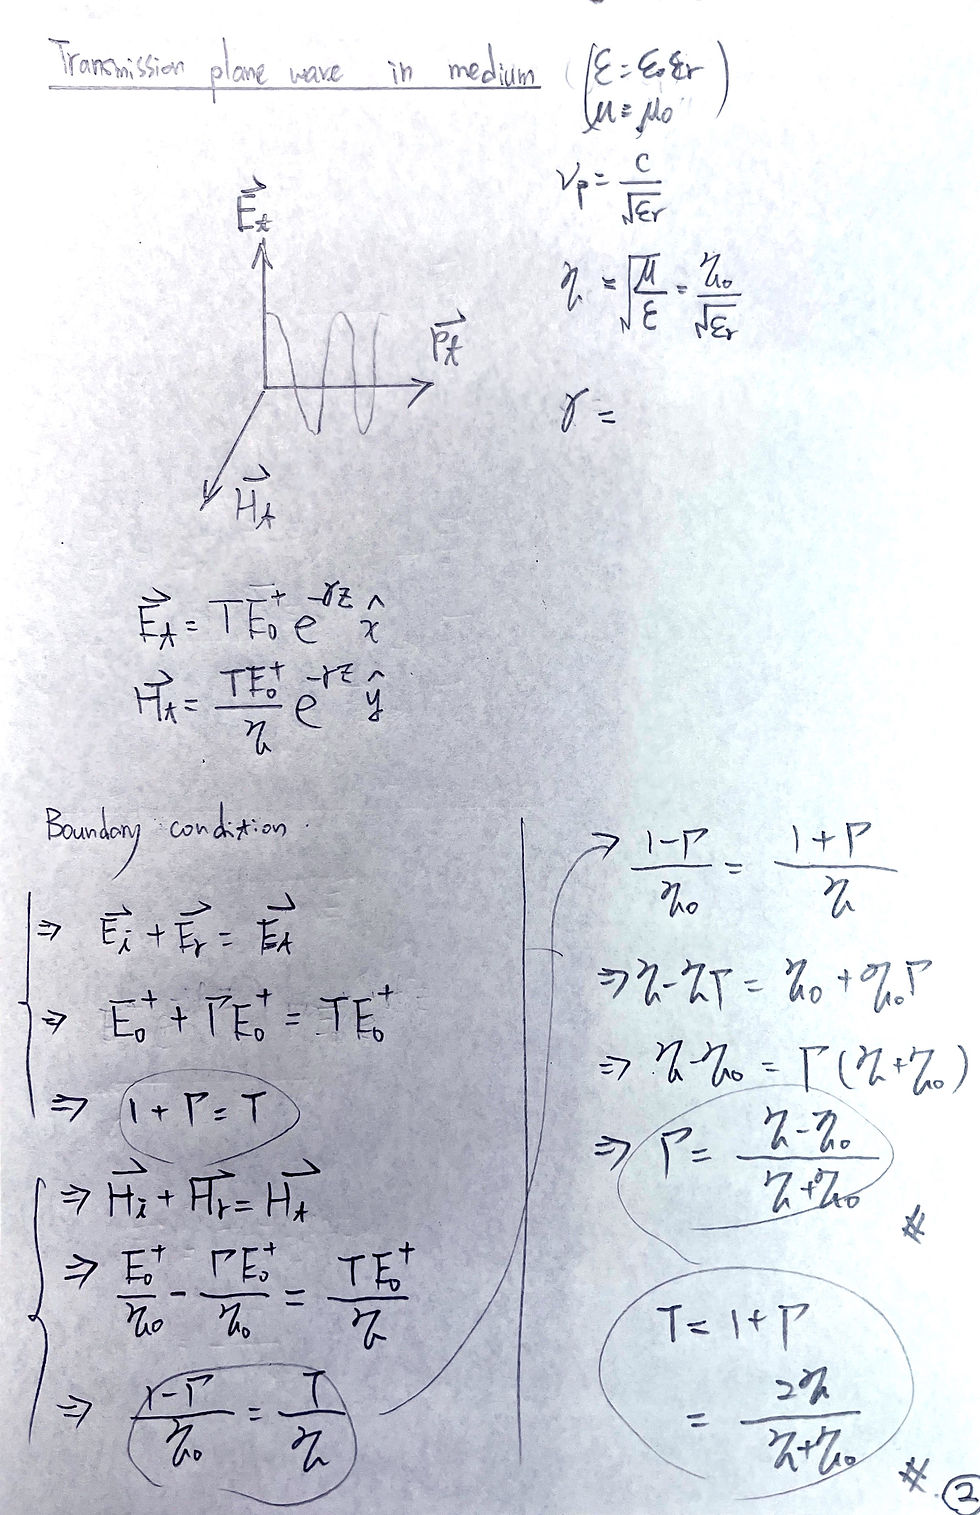 Transmission plane wave in medium (ε = ε₀εr
μ = μ₀)
νp = c/√εr
η = √(μ/ε) = η₀/√εr
γ =
E⃗t
P⃗t
H⃗t
E⃗t = TE₀⁺ e^(-γz) x̂
H⃗t = TE₀⁺/η e^(-γz) ŷ
Boundary condition
⇒ E⃗i + E⃗r = E⃗t
⇒ E₀⁺ + ΓE₀⁺ = TE₀⁺
⇒ 1 + Γ = T
⇒ H⃗i + H⃗r = H⃗t
⇒ E₀⁺/η₀ - ΓE₀⁺/η₀ = TE₀⁺/η
⇒ (1-Γ)/η₀ = T/η
→ (1-Γ)/η₀ = (1+Γ)/η
⇒ η-ηΓ = η₀ + η₀Γ
⇒ η-η₀ = Γ(η+η₀)
⇒ Γ = (η-η₀)/(η+η₀)
#
T = 1 + Γ
= 2η/(η+η₀)
#.
②